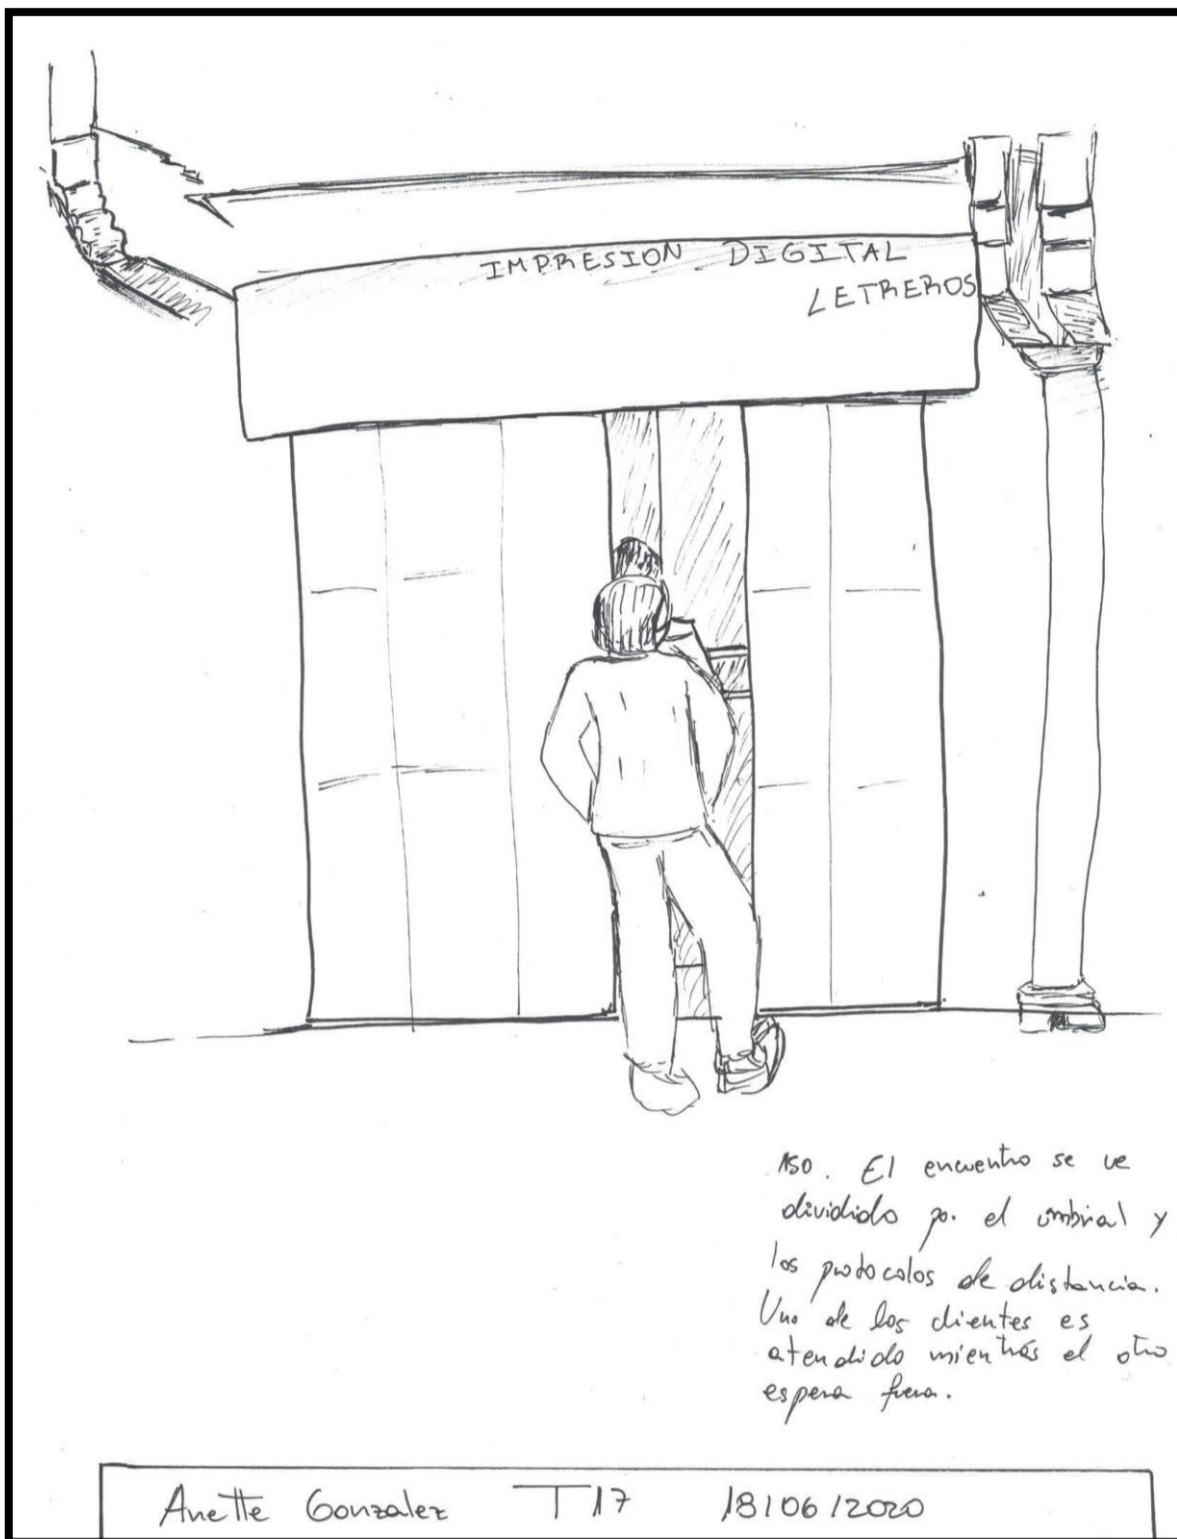 IMPRESION DIGITAL
LETREROS
150. El encuentro se ve
dividido po. el umbral y
los protocolos de distancia.
Uno de los clientes es
atendido mientrás el otro
espera fuera.
Anette Gonzalez T17 18/06/2020